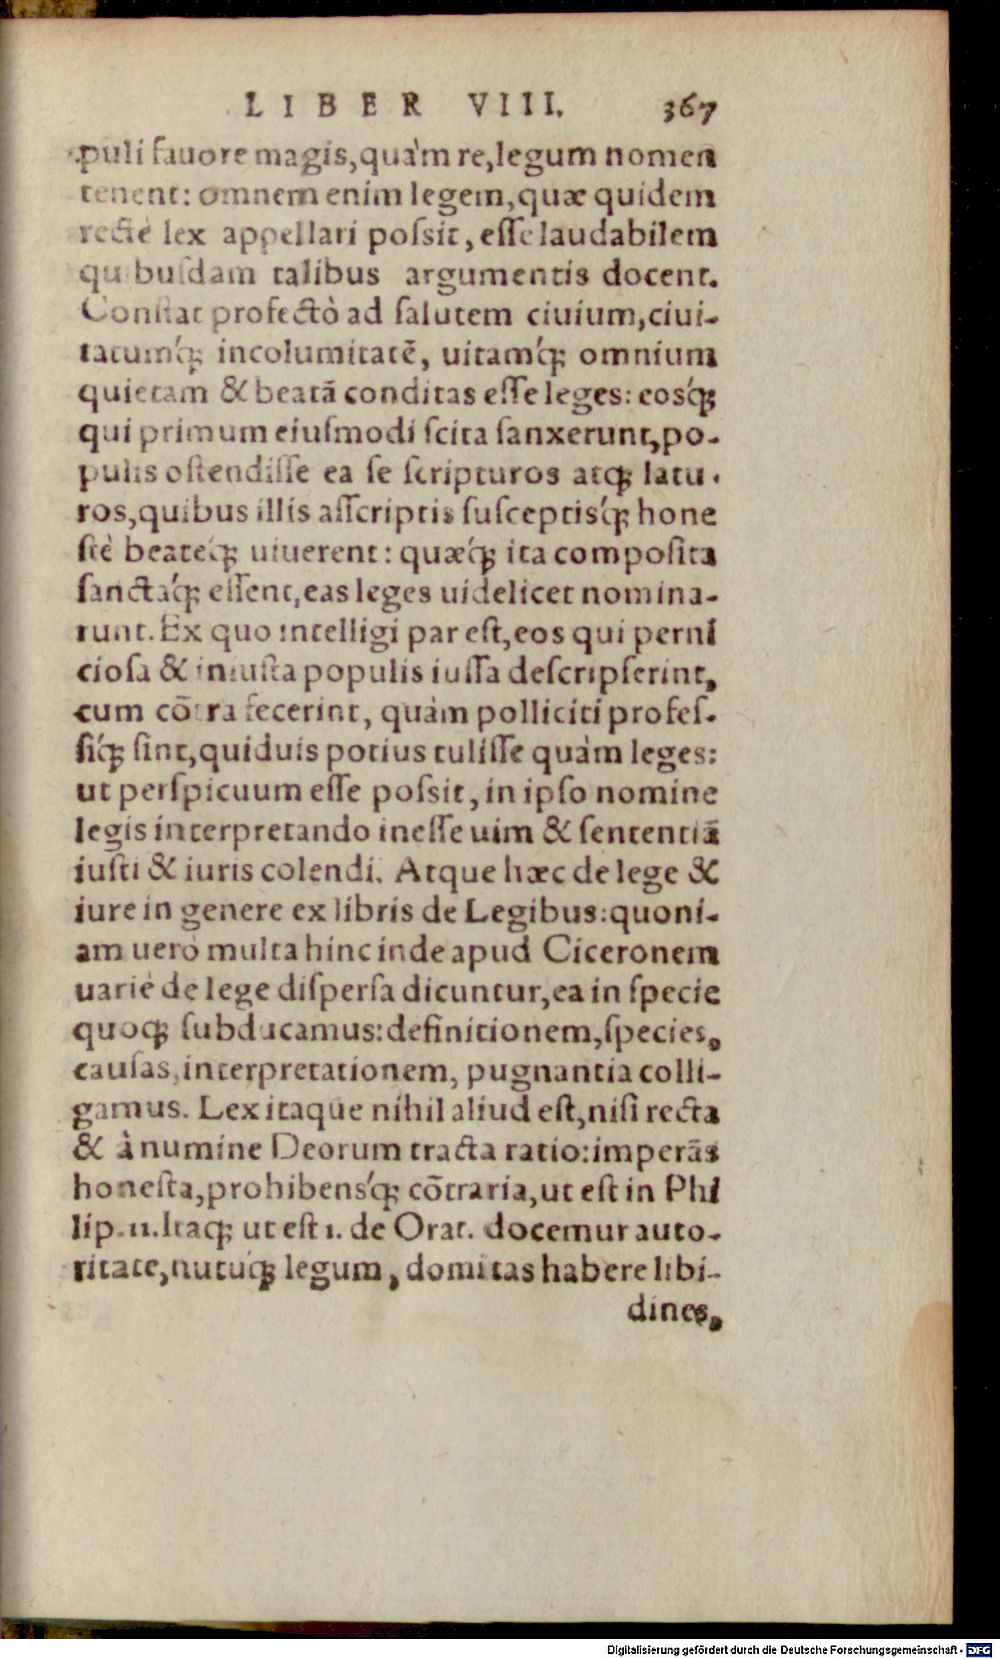 LIBER VIII. 367
puli fauore magis,quàm re,legum nomen
tenent: omnem enim legem,quæ quidem
rectè lex appellari poſsit, eſſe laudabilem
quibuſdam talibus argumentis docent.
Conſtat profectò ad ſalutem ciuium,ciui-
tatumq́ꝫ incolumitatē, uitamq́ꝫ omnium
quietam & beatā conditas eſſe leges: eosq́ꝫ
qui primum eiuſmodi ſcita ſanxerunt,po-
pulis oſtendiſſe ea se ſcripturos atqꝫ latu-
ros,quibus illis aſſcriptis ſuſceptisq́ꝫ hone
ſtè beateq́ꝫ uiuerent: quæq́ꝫ ita compoſita
ſanctaq́ꝫ eſſent,eas leges uidelicet nomina-
runt. Ex quo intelligi par eſt,eos qui perni
cioſa & iniuſta populis iuſſa deſcripſerint,
cum cōtra fecerint, quàm polliciti profeſ-
ſiq́ꝫ ſint,quiduis potius tuliſſe quàm leges:
ut perſpicuum eſſe poſsit, in ipſo nomine
legis interpretando ineſſe uim & ſententiā
iuſti & iuris colendi. Atque hæc de lege &
iure in genere ex libris de Legibus:quoni-
am uerò multa hinc inde apud Ciceronem
uariè de lege diſperſa dicuntur,ea in ſpecie
quoqꝫ ſubducamus:definitionem,ſpecies,
cauſas,interpretationem, pugnantia colli-
gamus. Lex itaque nihil aliud eſt,niſi recta
& à numine Deorum tracta ratio:imperās
honeſta,prohibensq́ꝫ cōtraria,ut eſt in Phi
lip.11.Itaqꝫ ut eſt 1. de Orat. docemur auto-
ritate,nutuq́ꝫ legum, domitas habere libi-
dines,
Digitalisierung gefördert durch die Deutsche Forschungsgemeinschaft - DFG